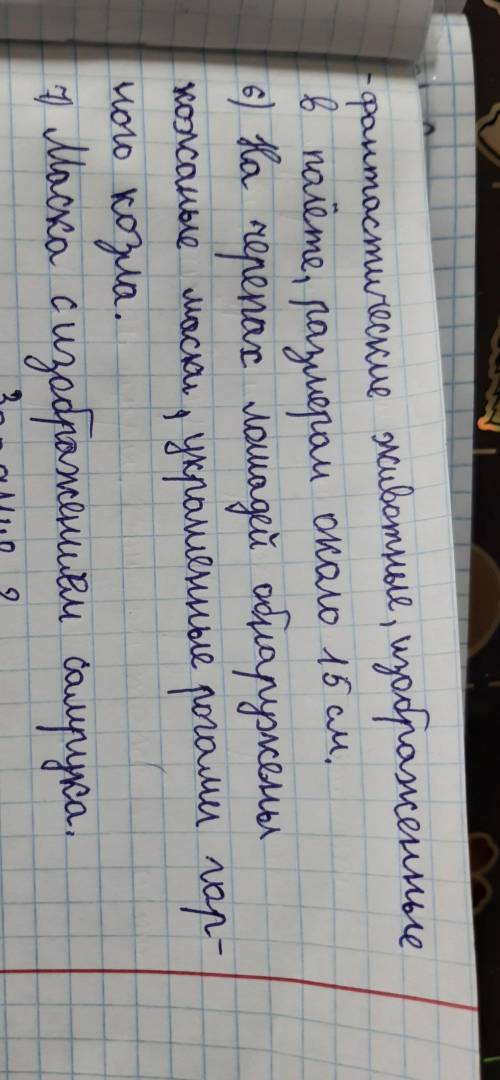 - фантастические животные, изображенные
в полёте, размером около 15 см.
6) На черепах лошадей обнаружены
кожаные маски, украшенные рогами гор-
ного козла.
7) Маска с изображением самрука.